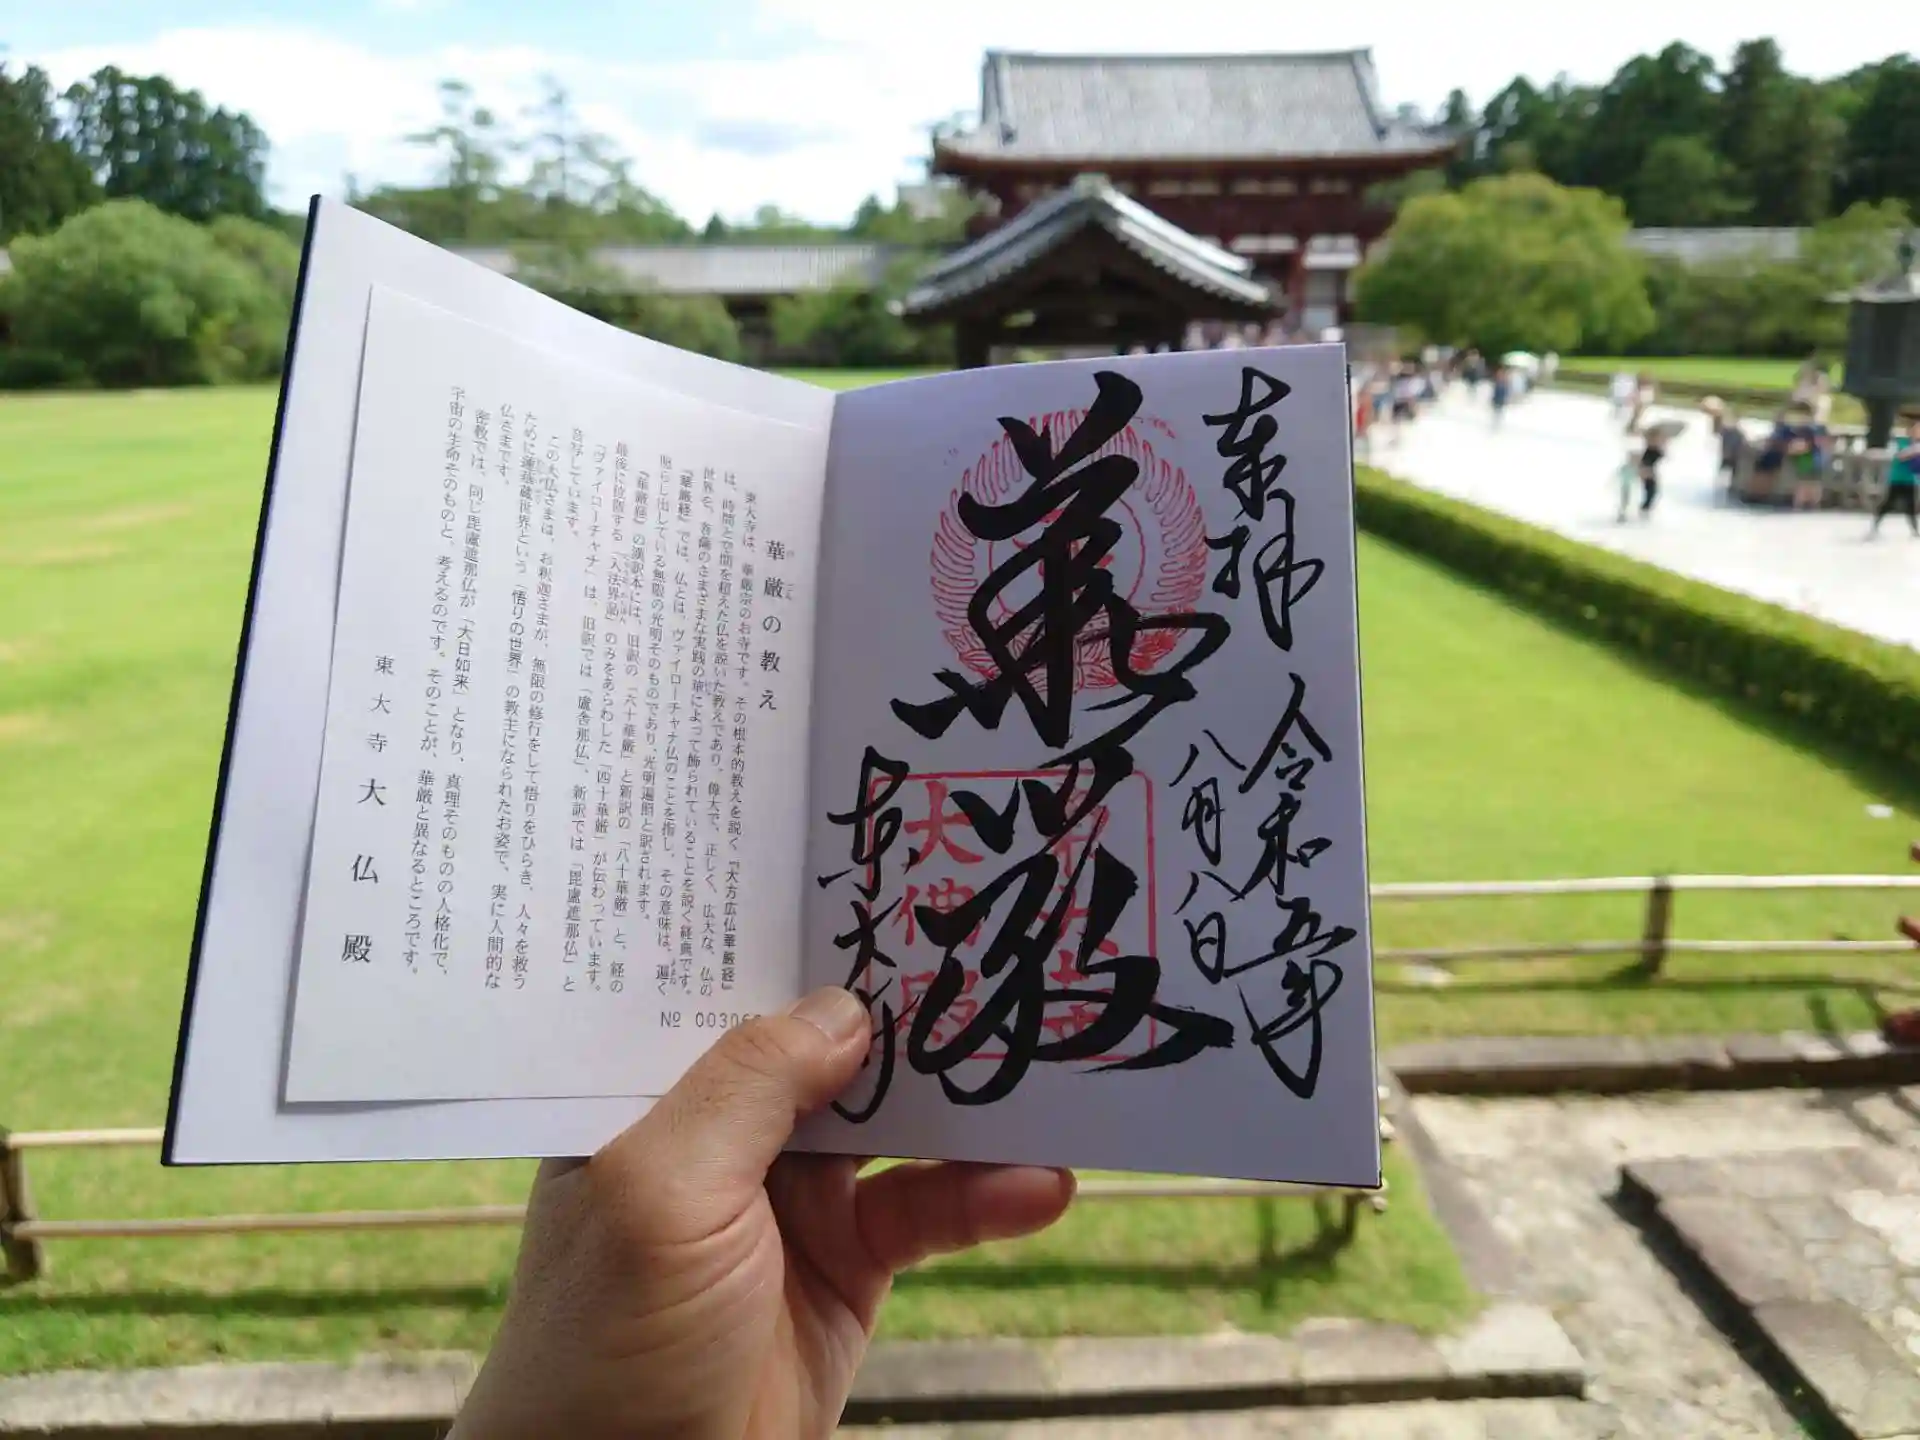 奉拝
令和五年
八月八日
華厳
東大寺
大佛殿
華厳の教え
東大寺は、華厳宗のお寺です。その根本的教えを説く『大方広仏華厳経』
は、時間と空間を超えた仏を説いた教えであり、偉大で、正しく、広大な、仏の
世界を、菩薩のさまざまな実践の華によって飾られていることを説く経典です。
『華厳経』では、仏とは、ヴァイローチャナ仏のことを指し、その意味は、遍く
照らし出している無限の光明そのものであり、光明遍照と訳されます。
『華厳経』の漢訳本には、旧訳の「六十華厳」と新訳の「八十華厳」と、経の
最後に位置する「入法界品」のみをあらわした「四十華厳」が伝わっています。
「ヴァイローチャナ」は、旧訳では「盧舎那仏」、新訳では「毘盧遮那仏」と
音写しています。
この大仏さまは、お釈迦さまが、無限の修行をして悟りをひらき、人々を救う
ために蓮華蔵世界という「悟りの世界」の教主になられたお姿で、実に人間的な
仏さまです。
密教では、同じ毘盧遮那仏が「大日如来」となり、真理そのものの人格化で、
宇宙の生命そのものと、考えるのです。そのことが、華厳と異なるところです。
東大寺 大仏殿
№ 00306